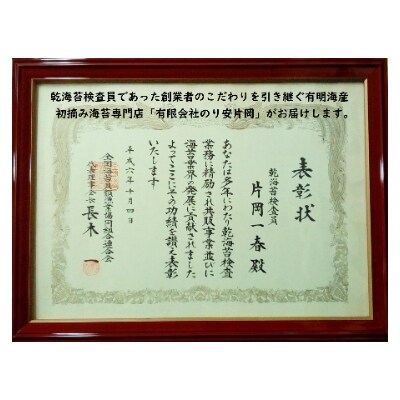 乾海苔検査員であった創業者のこだわりを引き継ぐ有明海産
初摘み海苔専門店「有限会社のり安片岡」がお届けします。
表彰状
乾海苔検査員
片岡一春殿
あなたは多年にわたり乾海苔検査
業務に精励され共販事業並びに
海苔業界の発展に貢献されました
よってここにその功績を讃え表彰
いたします
平成六年十月四日
全国海苔貝類漁業協同組合連合会
代表理事会長 長木一